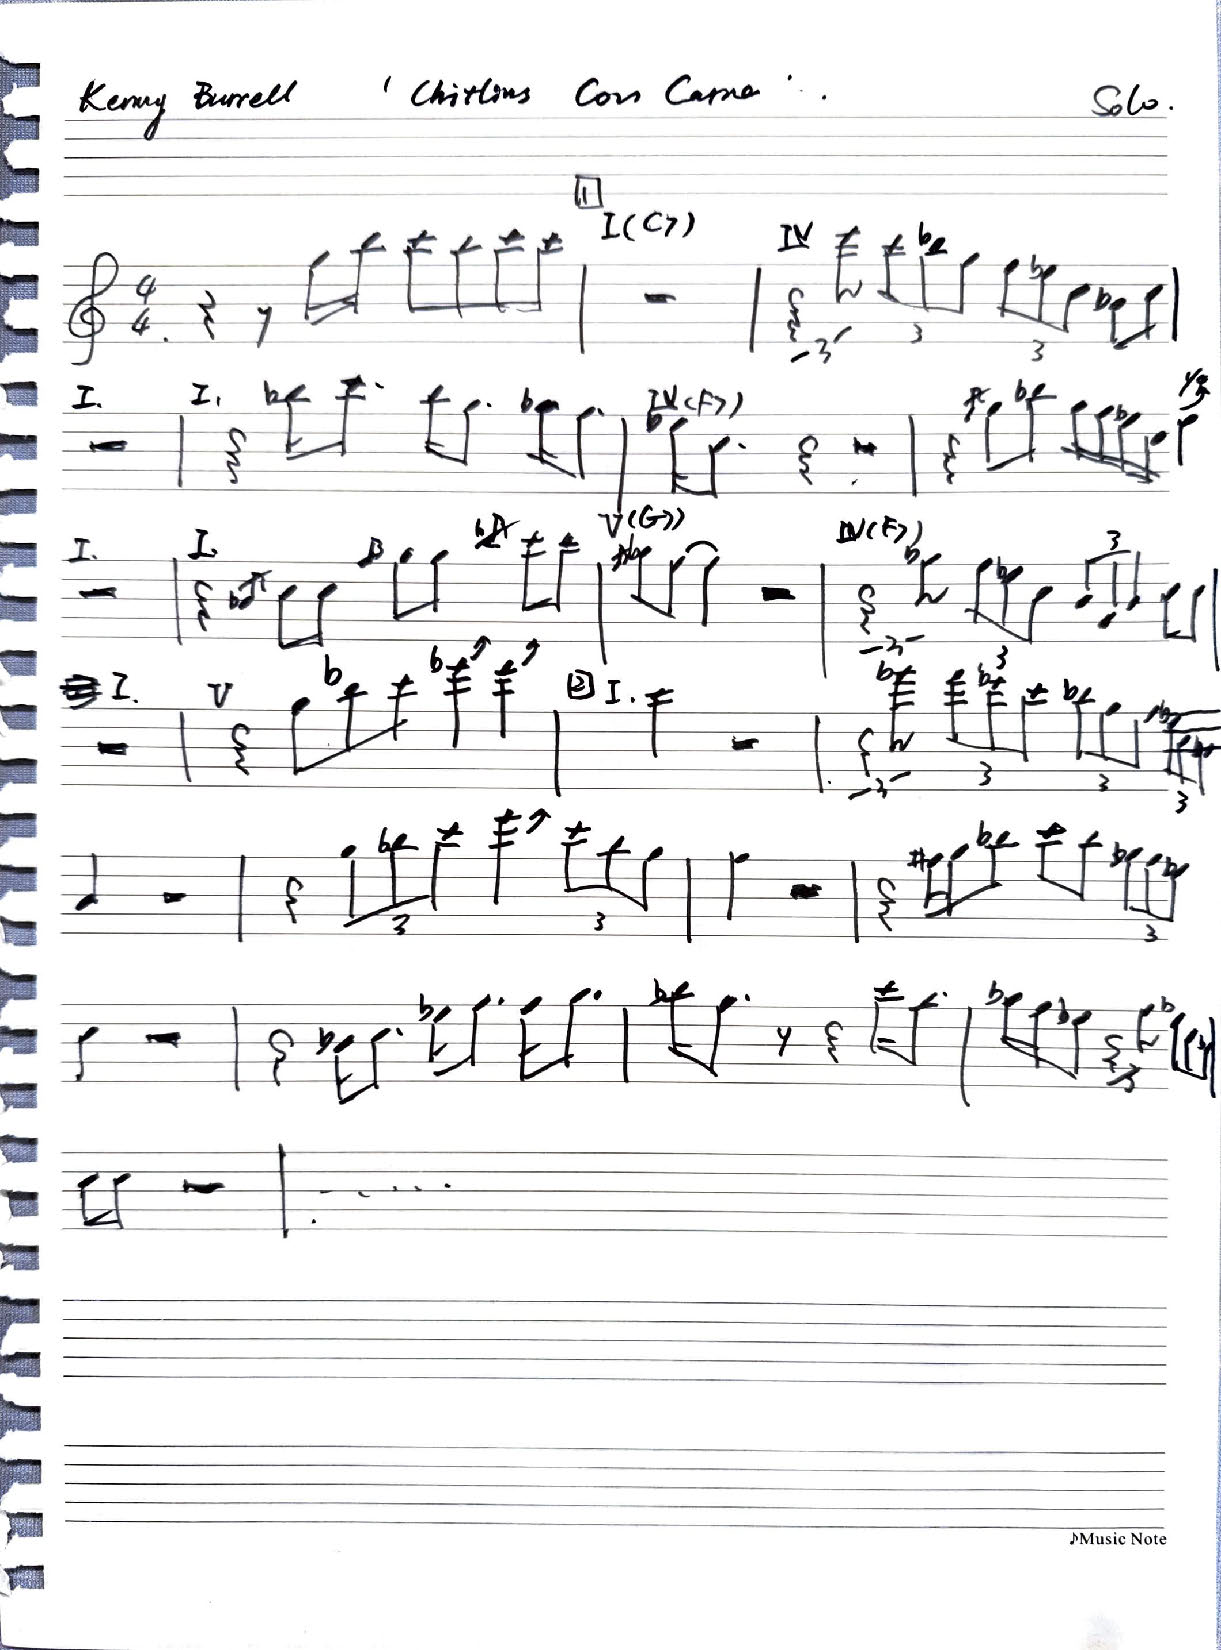 Kenny Burrell 'Chitlins Con Carne' Solo.
1
I (C7) IV
4
4
3 3 3
I. I. IV (F7)
I. I. V (G7) IV (F7)
3 3 3
I. V 2 I.
3 3 3 3
3 3 3
3
♪Music Note